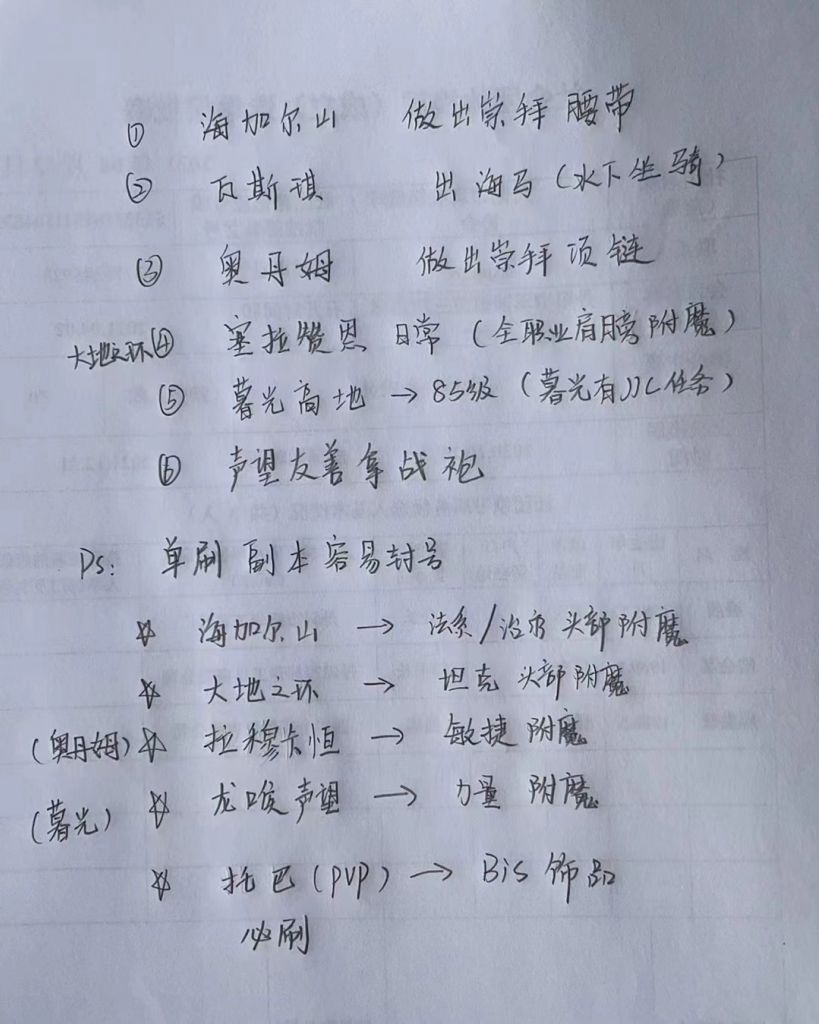 ① 海加尔山 做出崇拜腰带
② 瓦斯琪 出海马（水下坐骑）
③ 奥丹姆 做出崇拜项链
大地之环④ 塞拉赞恩 日常（全职业肩膀附魔）
⑤ 暮光高地 → 85级（暮光有JJC任务）
⑥ 声望友善拿战袍
Ps: 单刷副本容易封号
☆ 海加尔山 → 法系/治疗 头部附魔
☆ 大地之环 → 坦克 头部附魔
（奥丹姆）☆ 拉穆卡恒 → 敏捷 附魔
（暮光）☆ 龙喉声望 → 力量 附魔
☆ 托巴(PVP) → BiS 饰品
必刷